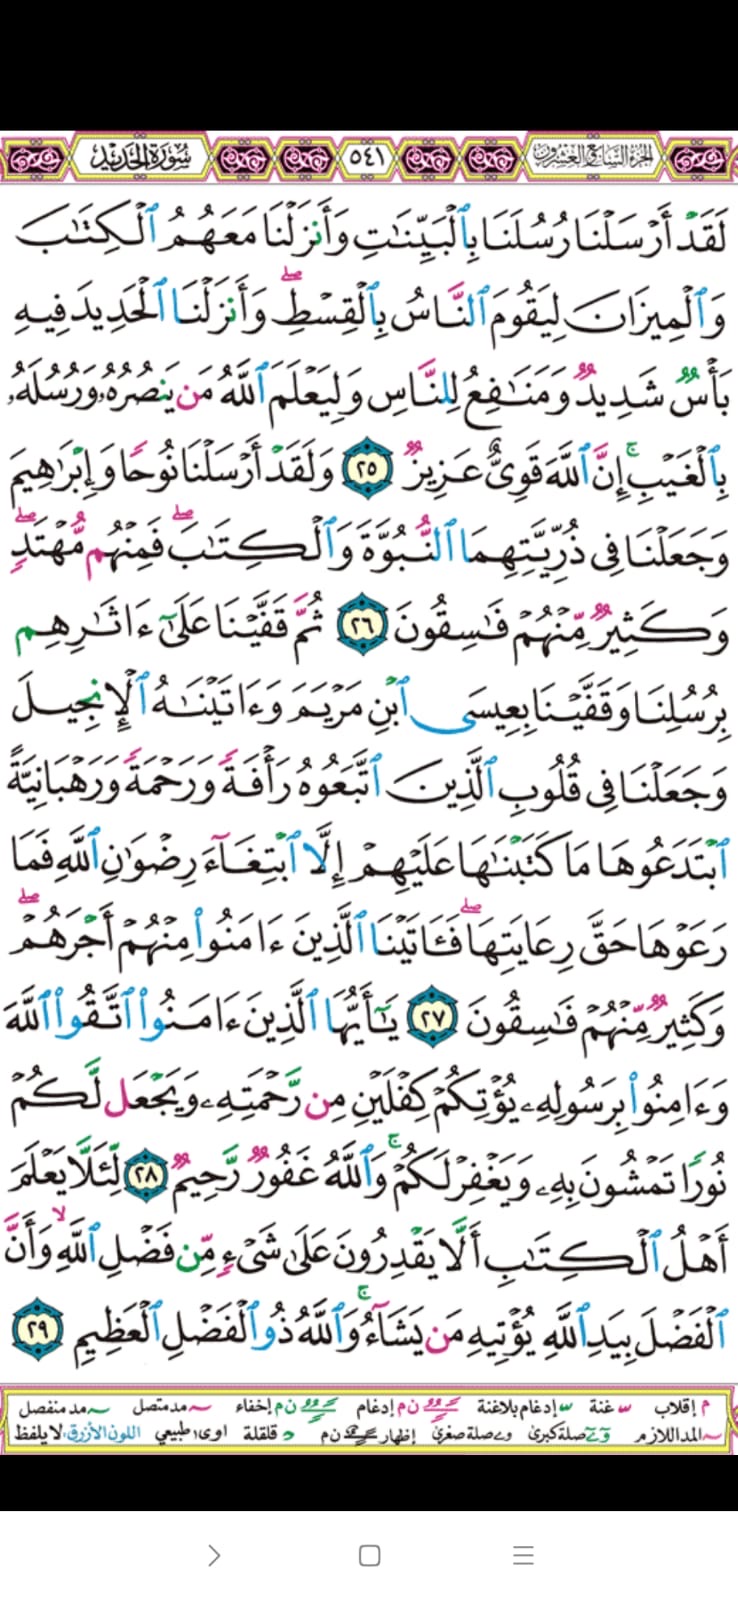 الجزء السابع والعشرون ٥٤١ سورة الحديد
لَقَدْ أَرْسَلْنَا رُسُلَنَا بِٱلْبَيِّنَٰتِ وَأَنزَلْنَا مَعَهُمُ ٱلْكِتَٰبَ
وَٱلْمِيزَانَ لِيَقُومَ ٱلنَّاسُ بِٱلْقِسْطِ ۖ وَأَنزَلْنَا ٱلْحَدِيدَ فِيهِ
بَأْسٌ شَدِيدٌ وَمَنَٰفِعُ لِلنَّاسِ وَلِيَعْلَمَ ٱللَّهُ مَن يَنصُرُهُۥ وَرُسُلَهُۥ
بِٱلْغَيْبِ ۚ إِنَّ ٱللَّهَ قَوِىٌّ عَزِيزٌ ٢٥ وَلَقَدْ أَرْسَلْنَا نُوحًا وَإِبْرَٰهِيمَ
وَجَعَلْنَا فِى ذُرِّيَّتِهِمَا ٱلنُّبُوَّةَ وَٱلْكِتَٰبَ ۖ فَمِنْهُم مُّهْتَدٍ ۖ
وَكَثِيرٌ مِّنْهُمْ فَٰسِقُونَ ٢٦ ثُمَّ قَفَّيْنَا عَلَىٰٓ ءَاثَٰرِهِم
بِرُسُلِنَا وَقَفَّيْنَا بِعِيسَى ٱبْنِ مَرْيَمَ وَءَاتَيْنَٰهُ ٱلْإِنجِيلَ
وَجَعَلْنَا فِى قُلُوبِ ٱلَّذِينَ ٱتَّبَعُوهُ رَأْفَةً وَرَحْمَةً وَرَهْبَانِيَّةً
ٱبْتَدَعُوهَا مَا كَتَبْنَٰهَا عَلَيْهِمْ إِلَّا ٱبْتِغَآءَ رِضْوَٰنِ ٱللَّهِ فَمَا
رَعَوْهَا حَقَّ رِعَايَتِهَا ۖ فَـَٔاتَيْنَا ٱلَّذِينَ ءَامَنُوا۟ مِنْهُمْ أَجْرَهُمْ ۖ
وَكَثِيرٌ مِّنْهُمْ فَٰسِقُونَ ٢٧ يَٰٓأَيُّهَا ٱلَّذِينَ ءَامَنُوا۟ ٱتَّقُوا۟ ٱللَّهَ
وَءَامِنُوا۟ بِرَسُولِهِۦ يُؤْتِكُمْ كِفْلَيْنِ مِن رَّحْمَتِهِۦ وَيَجْعَل لَّكُمْ
نُورًا تَمْشُونَ بِهِۦ وَيَغْفِرْ لَكُمْ ۚ وَٱللَّهُ غَفُورٌ رَّحِيمٌ ٢٨ لِّئَلَّا يَعْلَمَ
أَهْلُ ٱلْكِتَٰبِ أَلَّا يَقْدِرُونَ عَلَىٰ شَىْءٍ مِّن فَضْلِ ٱللَّهِ ۙ وَأَنَّ
ٱلْفَضْلَ بِيَدِ ٱللَّهِ يُؤْتِيهِ مَن يَشَآءُ ۚ وَٱللَّهُ ذُو ٱلْفَضْلِ ٱلْعَظِيمِ ٢٩
م إقلاب غنة إدغام بلاغنة ن م إدغام ن م إخفاء مد متصل مد منفصل
المد اللازم صلة كبرى و ے صلة صغرى إظهار ن م د قلقلة اوى طبيعي اللون الأزرق: لا يلفظ